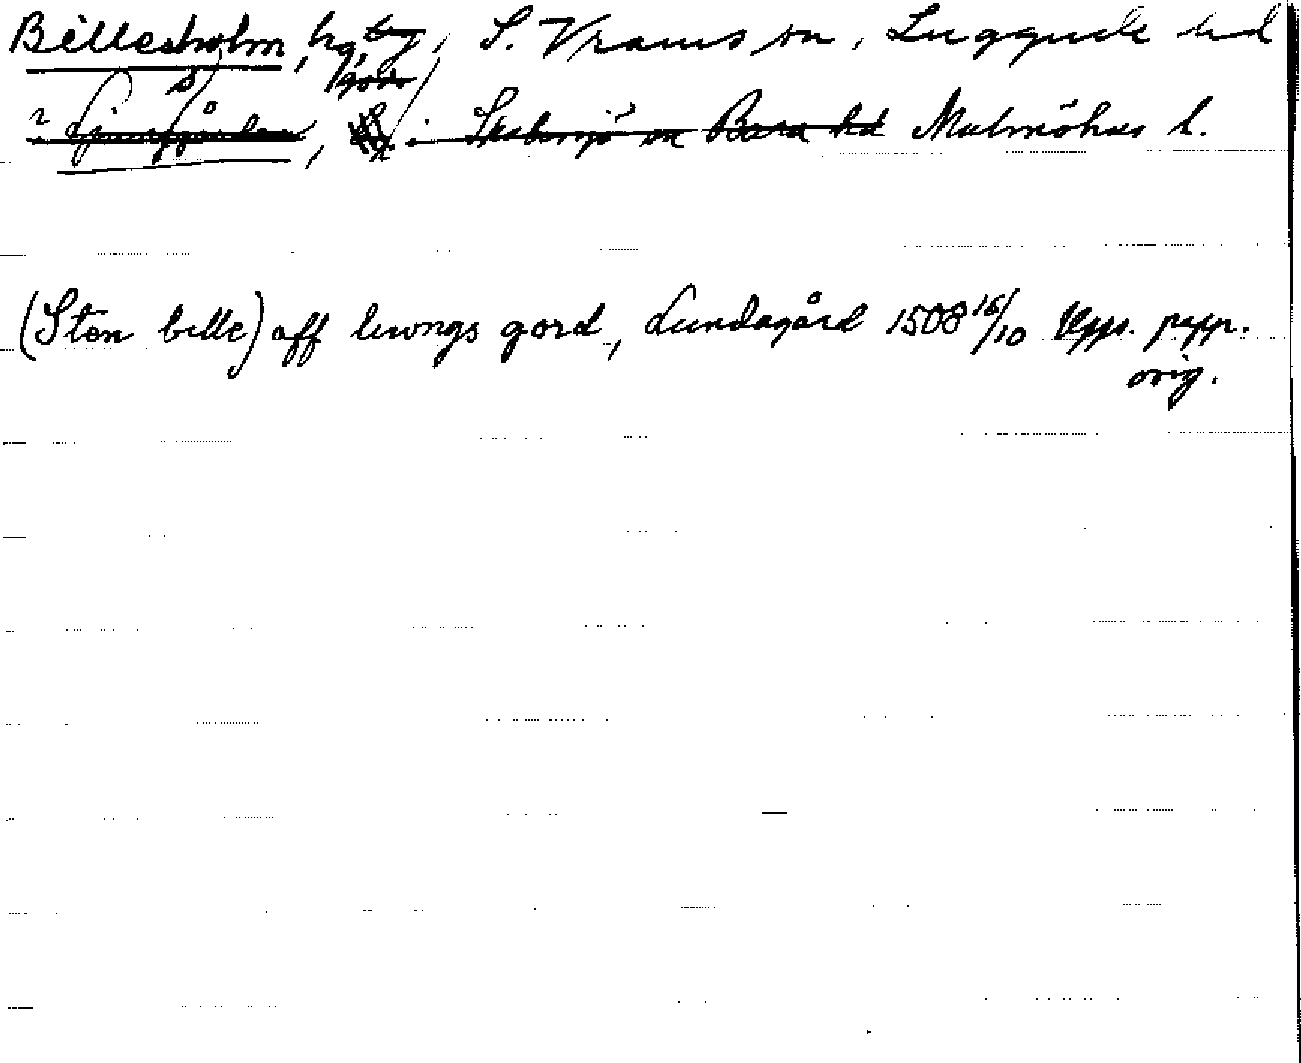 Billesholm, hg, by, S. Vrams sn, Luggude hd
? Ljungsgården, i Skabersjö sn Bara hd Malmöhus l.
(Sten bille) aff lewngs gord, Lundagård 1508 16/10 Upps. papp.
orig.